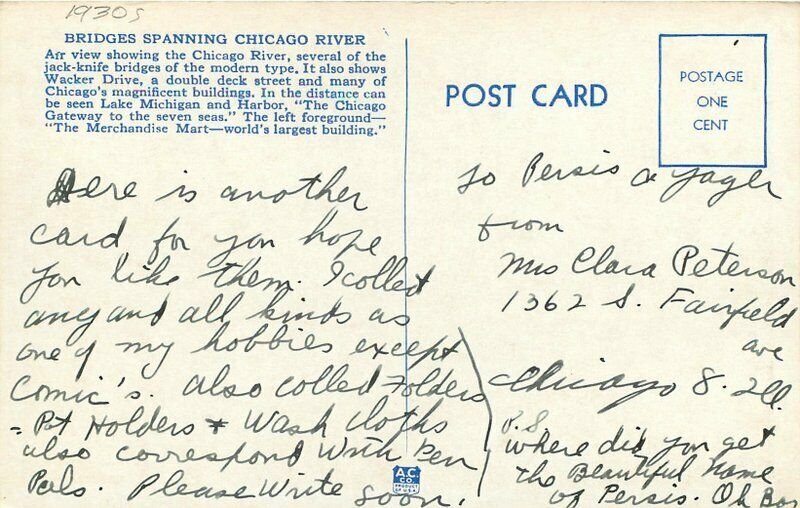 1930s
BRIDGES SPANNING CHICAGO RIVER
Air view showing the Chicago River, several of the
jack-knife bridges of the modern type. It also shows
Wacker Drive, a double deck street and many of
Chicago's magnificent buildings. In the distance can
be seen Lake Michigan and Harbor, "The Chicago
Gateway to the seven seas." The left foreground—
"The Merchandise Mart—world's largest building."
POST CARD
POSTAGE
ONE
CENT
Here is another
card for you hope
you like them. I collect
any and all kinds as
one of my hobbies except
Comic's. also collect Folders
- Pot Holders + Wash Cloths
also correspond With Pen
Pals. Please Write soon.
To Persis a Yager
from
Mrs Clara Peterson
1362 S. Fairfield
ave
Chicago 8. Ill.
P.S.
where did you get
the Beautiful Name
of Persis. Oh Boy
A.C.
CO.
PRODUCT
OF U.S.A.